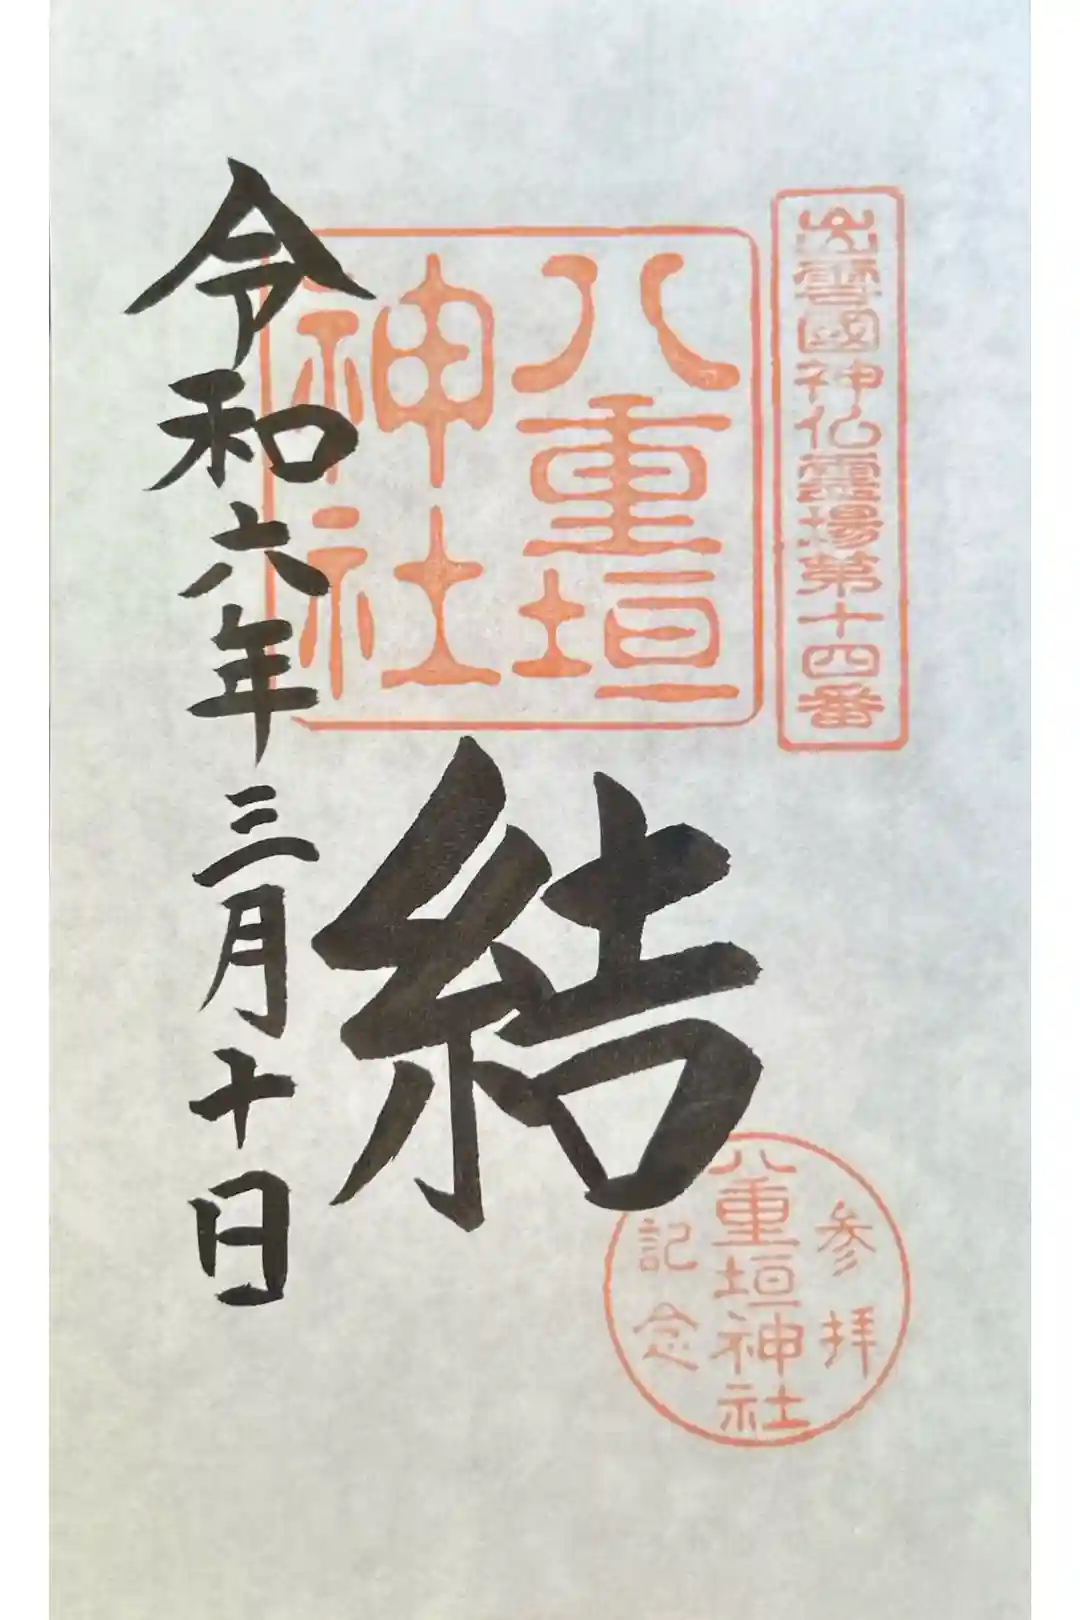 出雲國神仏霊場第十四番
八重垣
神社
結
令和六年三月十日
参拝
八重垣神社
記念